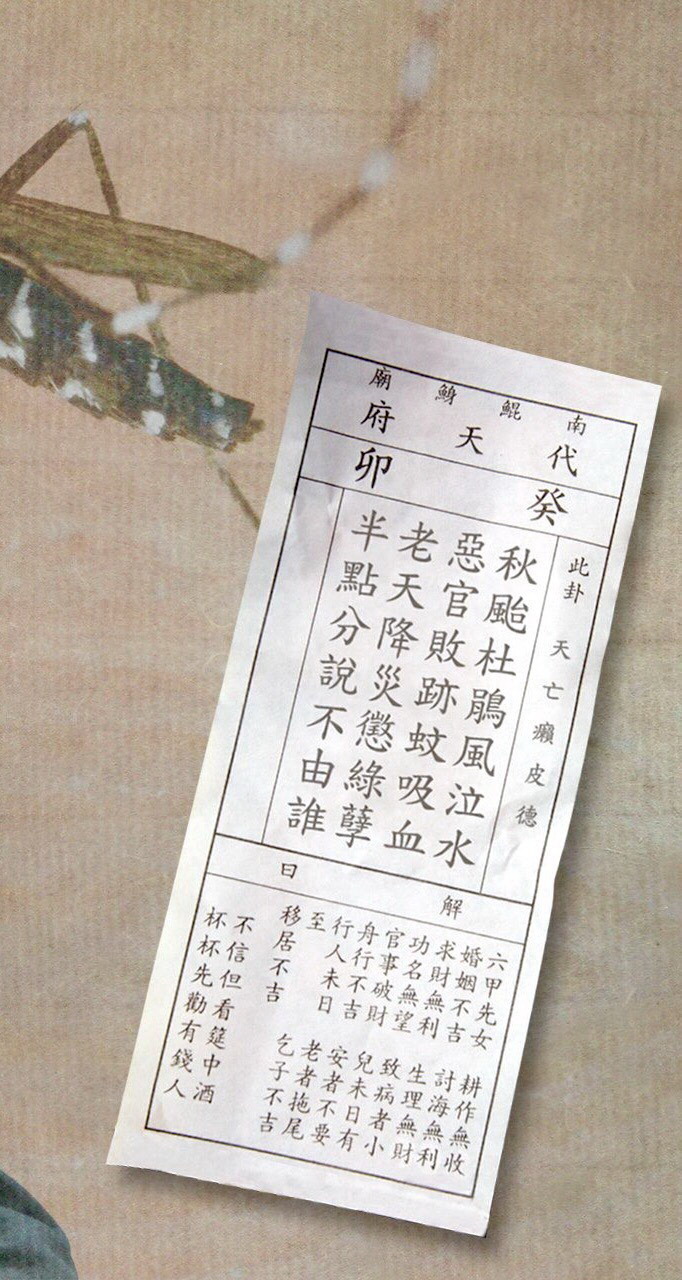 南鯤鯓廟
代天府
癸卯
此卦 天亡癩皮德
秋颱杜鵑風泣水
惡官敗跡蚊吸血
老天降災懲綠孽
半點分說不由誰
解曰
六甲先女
婚姻不吉
求財無利
功名無望
官事破財
舟行不吉
行人未日
至
移居不吉
耕作無收
討海無利
生理無財
致病者小
兒未日有
安者不要
老者拖尾
乞子不吉
不信但看筵中酒
杯杯先勸有錢人